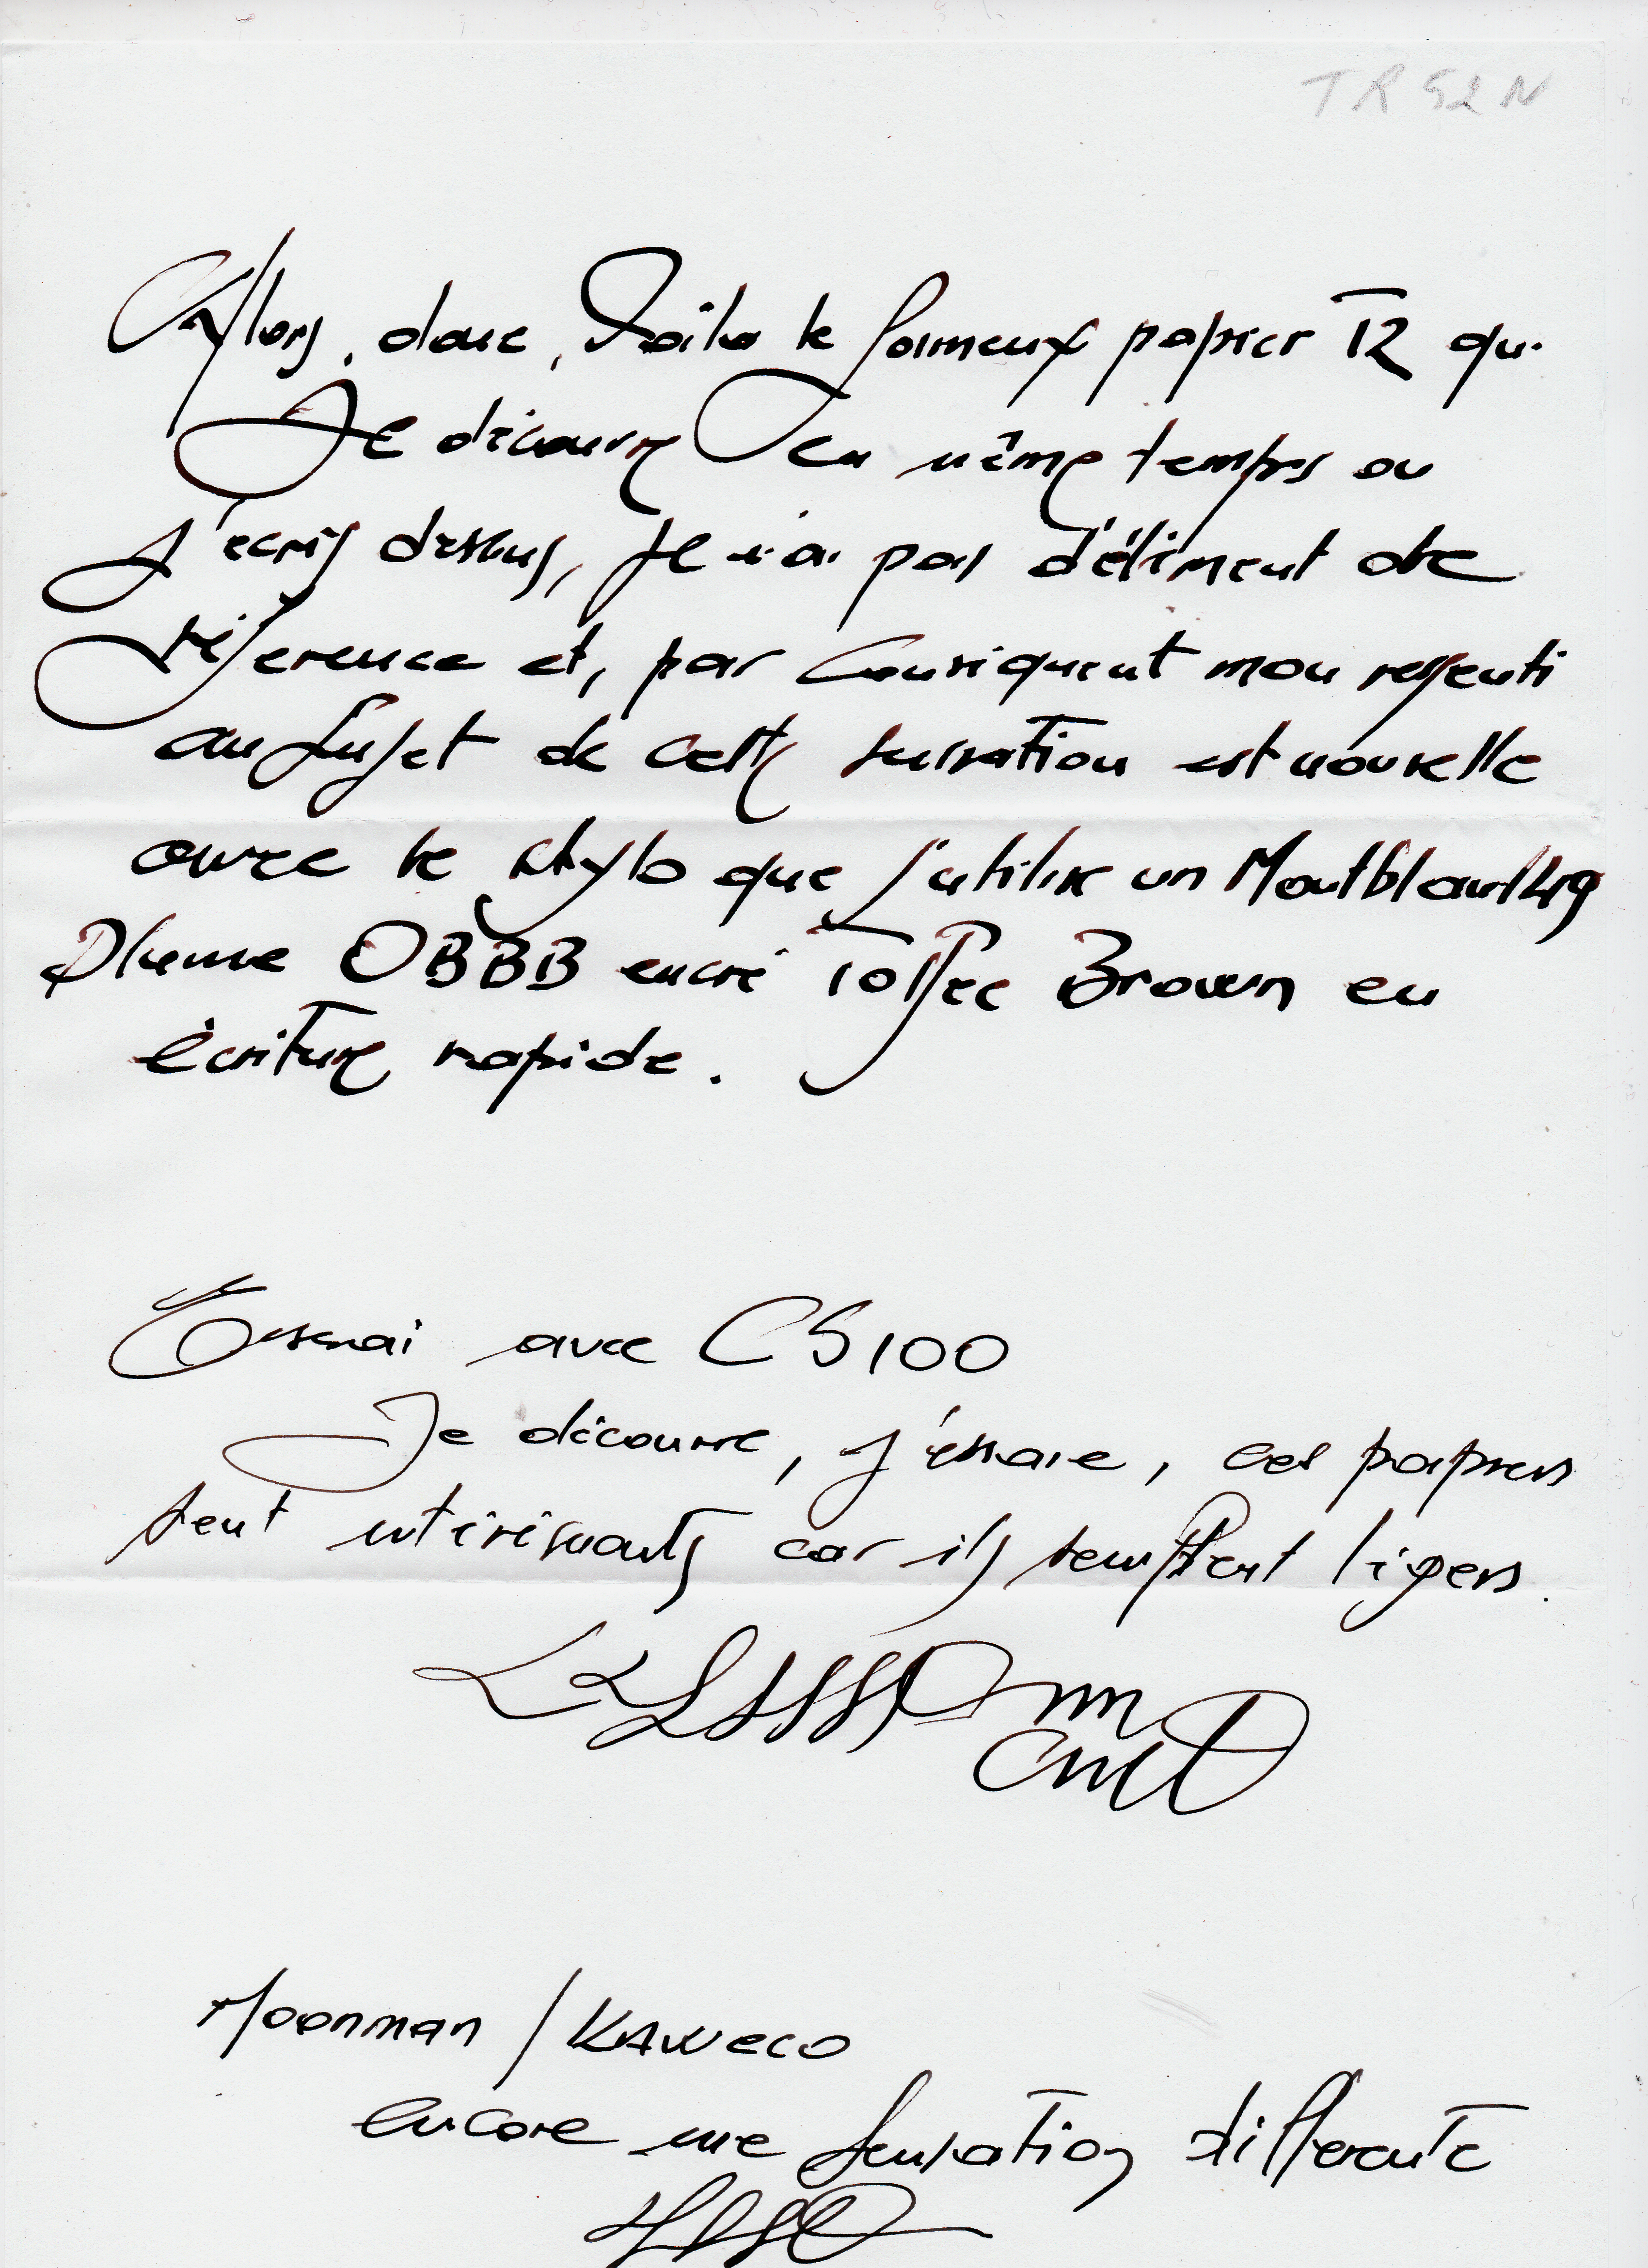 TR 52 N
Alors, donc, voila le fameux papier TR que
Je découvre en même temps ou
J'ecris dessus, Je n'ai pas d'élément de
réference et, par conséquent mon ressenti
au sujet de cette sensation est nouvelle
avec le stylo que J'utilise un Montblanc 149
Plume OBBB encré Toffee Brown en
écriture rapide.
Essai avec CS100
Je découvre, J'essaie, ces papiers
sont intéréssants car ils semblent légers.
Moonman / KAWECO
encore une sensation différente